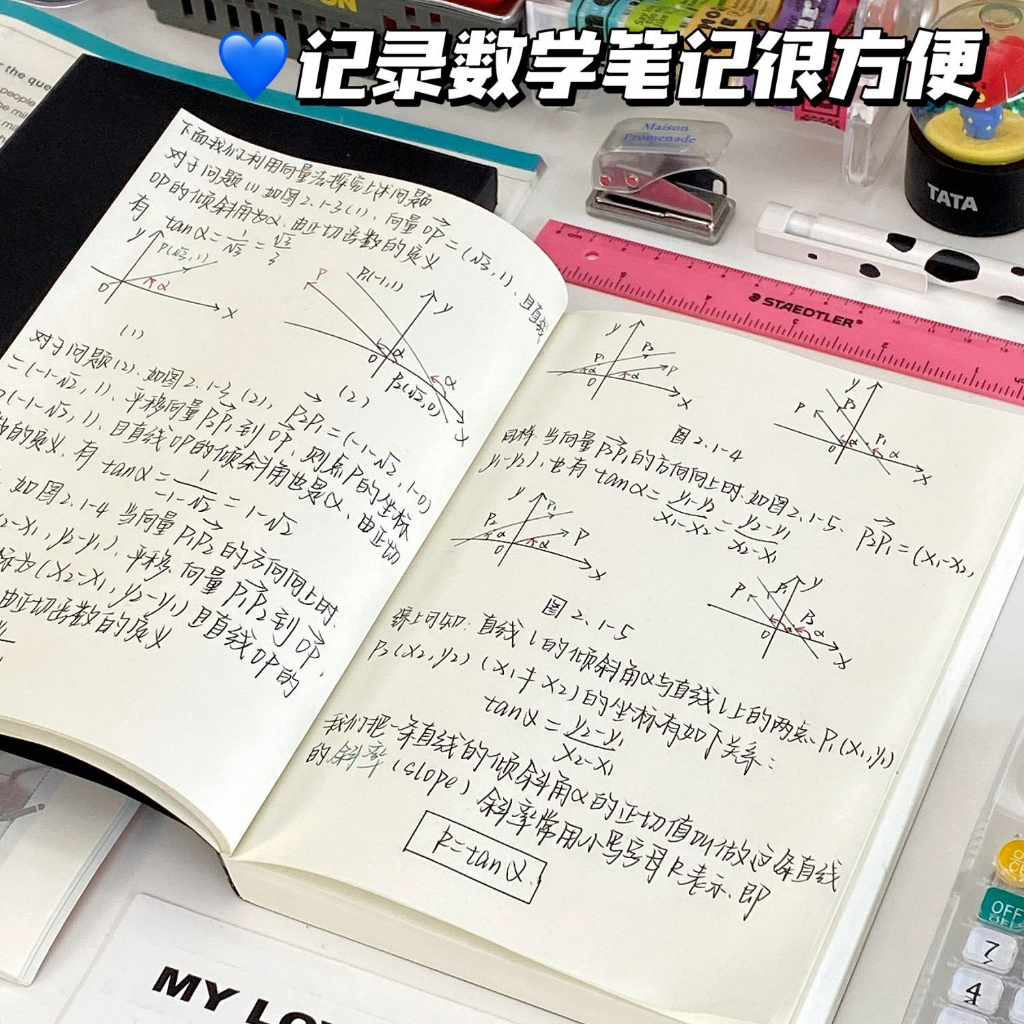 💙记录数学笔记很方便
the que
people
Maison
Promenade
TATA
STAEDTLER
下面我们利用向量法探究上述问题
对于问题(1).如图2.1-3(1)、向量OP=(√3,1)、且直线
OP的倾斜角为α.由正切函数的定义
有 tanα=1/√3=√3/3
y
P(√3,1)
0
α
x
(1)
P
P1(-1,1)
y
0
α
α
P2(√2,0)
x
(2)
对于问题(2).如图2.1-3(2),P2P1=(-1-√2,1-0)
=(-1-√2,1).平移向量P2P1到OP,则点P的坐标
(-1-√2,1).且直线OP的倾斜角也是α.由正切
数的定义.有 tanα=1/-1-√2=1-√2
如图2.1-4 当向量P1P2的方向向上时.
2-x1,y2-y1).平移向量P1P2到OP,
标为(x2-x1,y2-y1)且直线OP的
由正切函数的定义
y
P2
P1
P
0
α
α
x
y
P
P2
P1
0
α
α
x
图2.1-4
同样.当向量P2P1的方向向上时.如图2.1-5、P2P1=(x1-x2,
y1-y2),也有 tanα=y1-y2/x1-x2=y2-y1/x2-x1
y
P1
P2
P
0
α
x
y
P
P2
0
α
x
图2.1-5
综上可知:直线l的倾斜角α与直线l上的两点P1(x1,y1)
P2(x2,y2)(x1≠x2)的坐标有如下关系:
tanα=y2-y1/x2-x1
我们把一条直线的倾斜角α的正切值叫做这条直线
的斜率(slope)斜率常用小写字母k表示.即
k=tanα.
OFF
7
4
MY LO